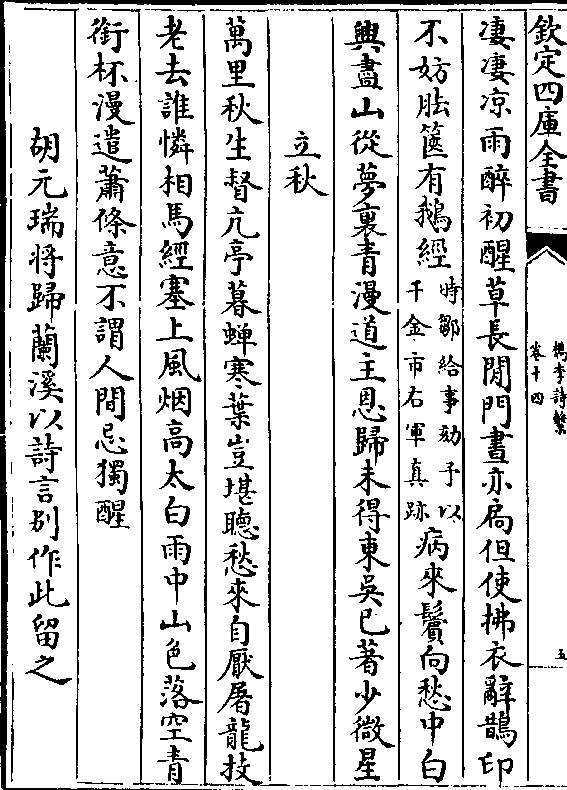 欽定四庫全書
檇李詩繫
卷十四
五
凄凄凉雨醉初醒草長閒門晝亦扄但使拂衣辭鵲印
不妨胠篋有鵝經
時鄒給事劾予以
千金市右軍真跡
病來鬢向愁中白
興盡山從夢裏青漫道主恩歸未得東吳已著少微星
立秋
萬里秋生督亢亭暮蟬寒葉豈堪聽愁來自厭屠龍技
老去誰憐相馬經塞上風烟高太白雨中山色落空青
銜杯漫遣蕭條意不謂人間忌獨醒
胡元瑞將歸蘭溪以詩言别作此留之